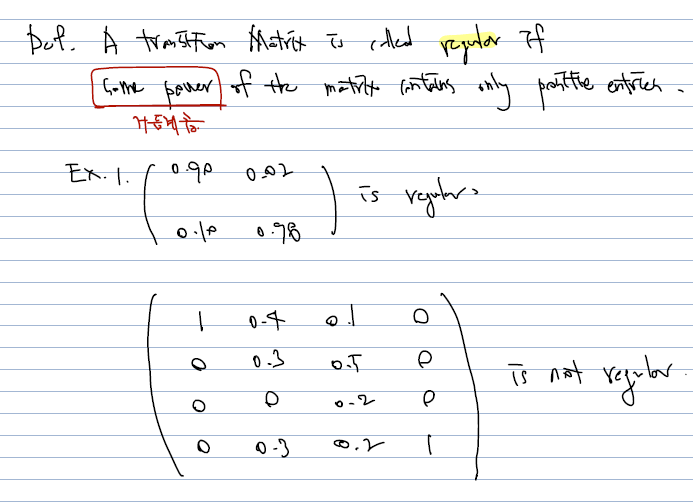 Def. A transition Matrix is called regular if
some power of the matrix contains only positive entries.
거듭제곱
Ex. 1. 0.90 0.02
0.10 0.98
is regular.
1 0.4 0.1 0
0 0.3 0.5 0
0 0 0.2 0
0 0.3 0.2 1
is not regular.